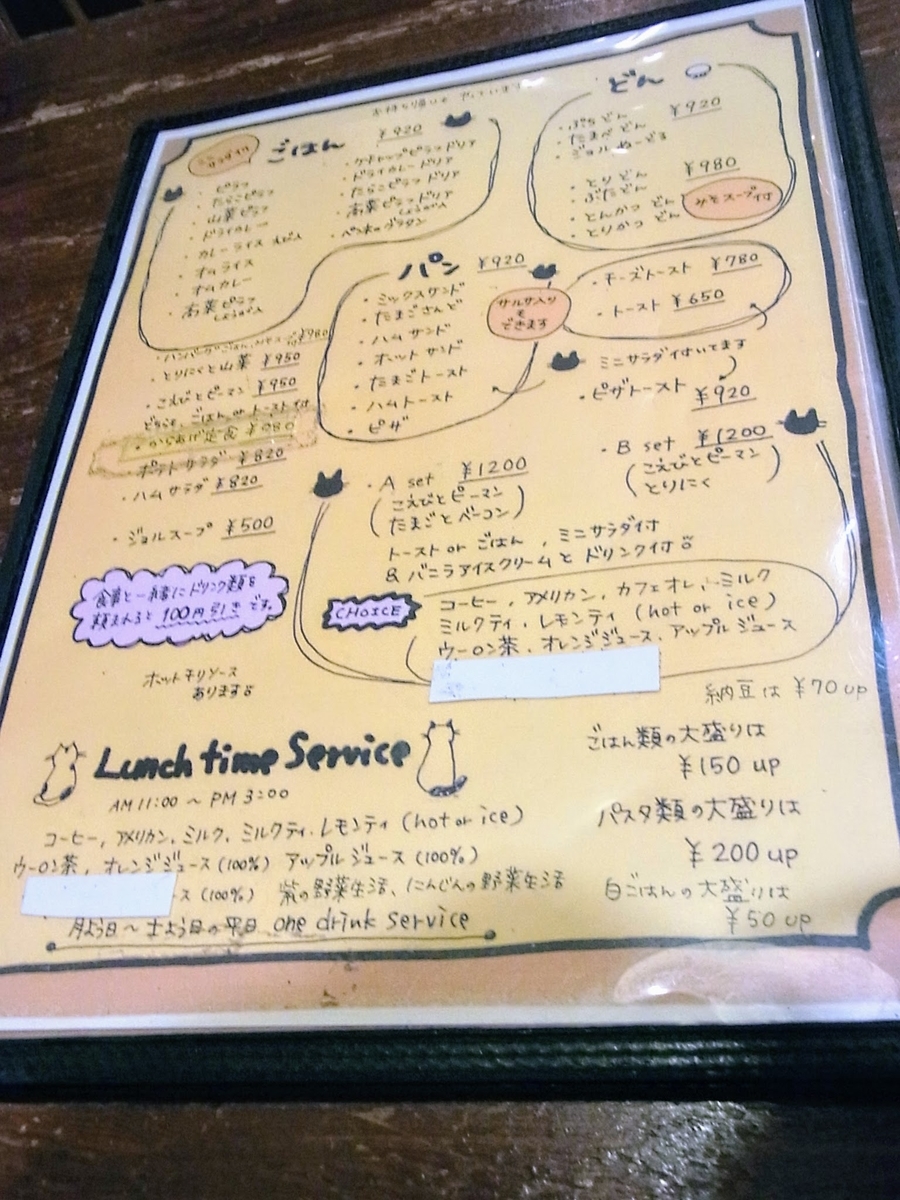 お持ち帰りも やっています
ミニサラダ付
ごはん ¥920
・ピラフ
・たらこピラフ
・山菜ピラフ
・ドライカレー
・カレーライス
・オムライス
・オムカレー
・高菜ピラフ
しょうが入
・ケチャップピラフドリア
・ドライカレードリア
・たらこピラフドリア
・高菜ピラフドリア
しょうが入
・ペンネのグラタン
どん
¥920
・ぷちどん
・たまべどん
・ジョルぬーどる
¥980
・とりどん
・ぶたどん
・とんかつ どん
・とりかつ どん
みそスープ付
パン ¥920
・ミックスサンド
・たまごさんど
・ハムサンド
・ホットサンド
・たまごトースト
・ハムトースト
・ピザ
サルサ入り
も
できます
・チーズトースト ¥780
・トースト ¥650
ミニサラダ付いてます
・ピザトースト ¥920
¥980
・とりにくと山菜 ¥950
・こえびとピーマン ¥950
どちらも、ごはん or トースト付
・からあげ定食 ¥980
・ポテトサラダ ¥820
・ハムサラダ ¥820
・ジョルスープ ¥500
・A set ¥1200
(こえびとピーマン
たまごとベーコン)
・B set ¥1200
(こえびとピーマン
とりにく)
トースト or ごはん , ミニサラダ付
& バニラアイスクリームと ドリンク付
CHOICE
コーヒー , アメリカン , カフェオレ , ミルク
ミルクティ , レモンティ (hot or ice)
ウーロン茶 , オレンジジュース , アップルジュース
食事と一緒にドリンク類を
頼まれると 100円引き です。
ホットチリソース
あります
納豆は ¥70 up
Lunch time Service
AM 11:00 ~ PM 3:00
コーヒー , アメリカン , ミルク , ミルクティ・レモンティ (hot or ice)
ウーロン茶 , オレンジジュース (100%) アップルジュース (100%)
ス (100%) 紫の野菜生活、にんじんの野菜生活
月よう日~土よう日の平日 one drink service
ごはん類の大盛りは
¥150 up
パスタ類の大盛りは
¥200 up
白ごはんの大盛りは
¥50 up